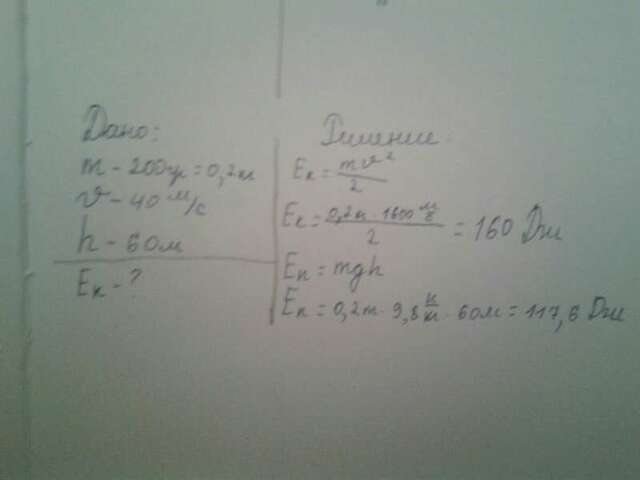 Дано:
m - 200гр = 0,2кг
v - 40 м/с
h - 60м
Eк - ?
Решение:
Eк = mv²/2
Eк = 0,2кг · 1600 м/с / 2 = 160 Дж
Eп = mgh
Eп = 0,2m · 9,8 н/кг · 60м = 117,6 Дж